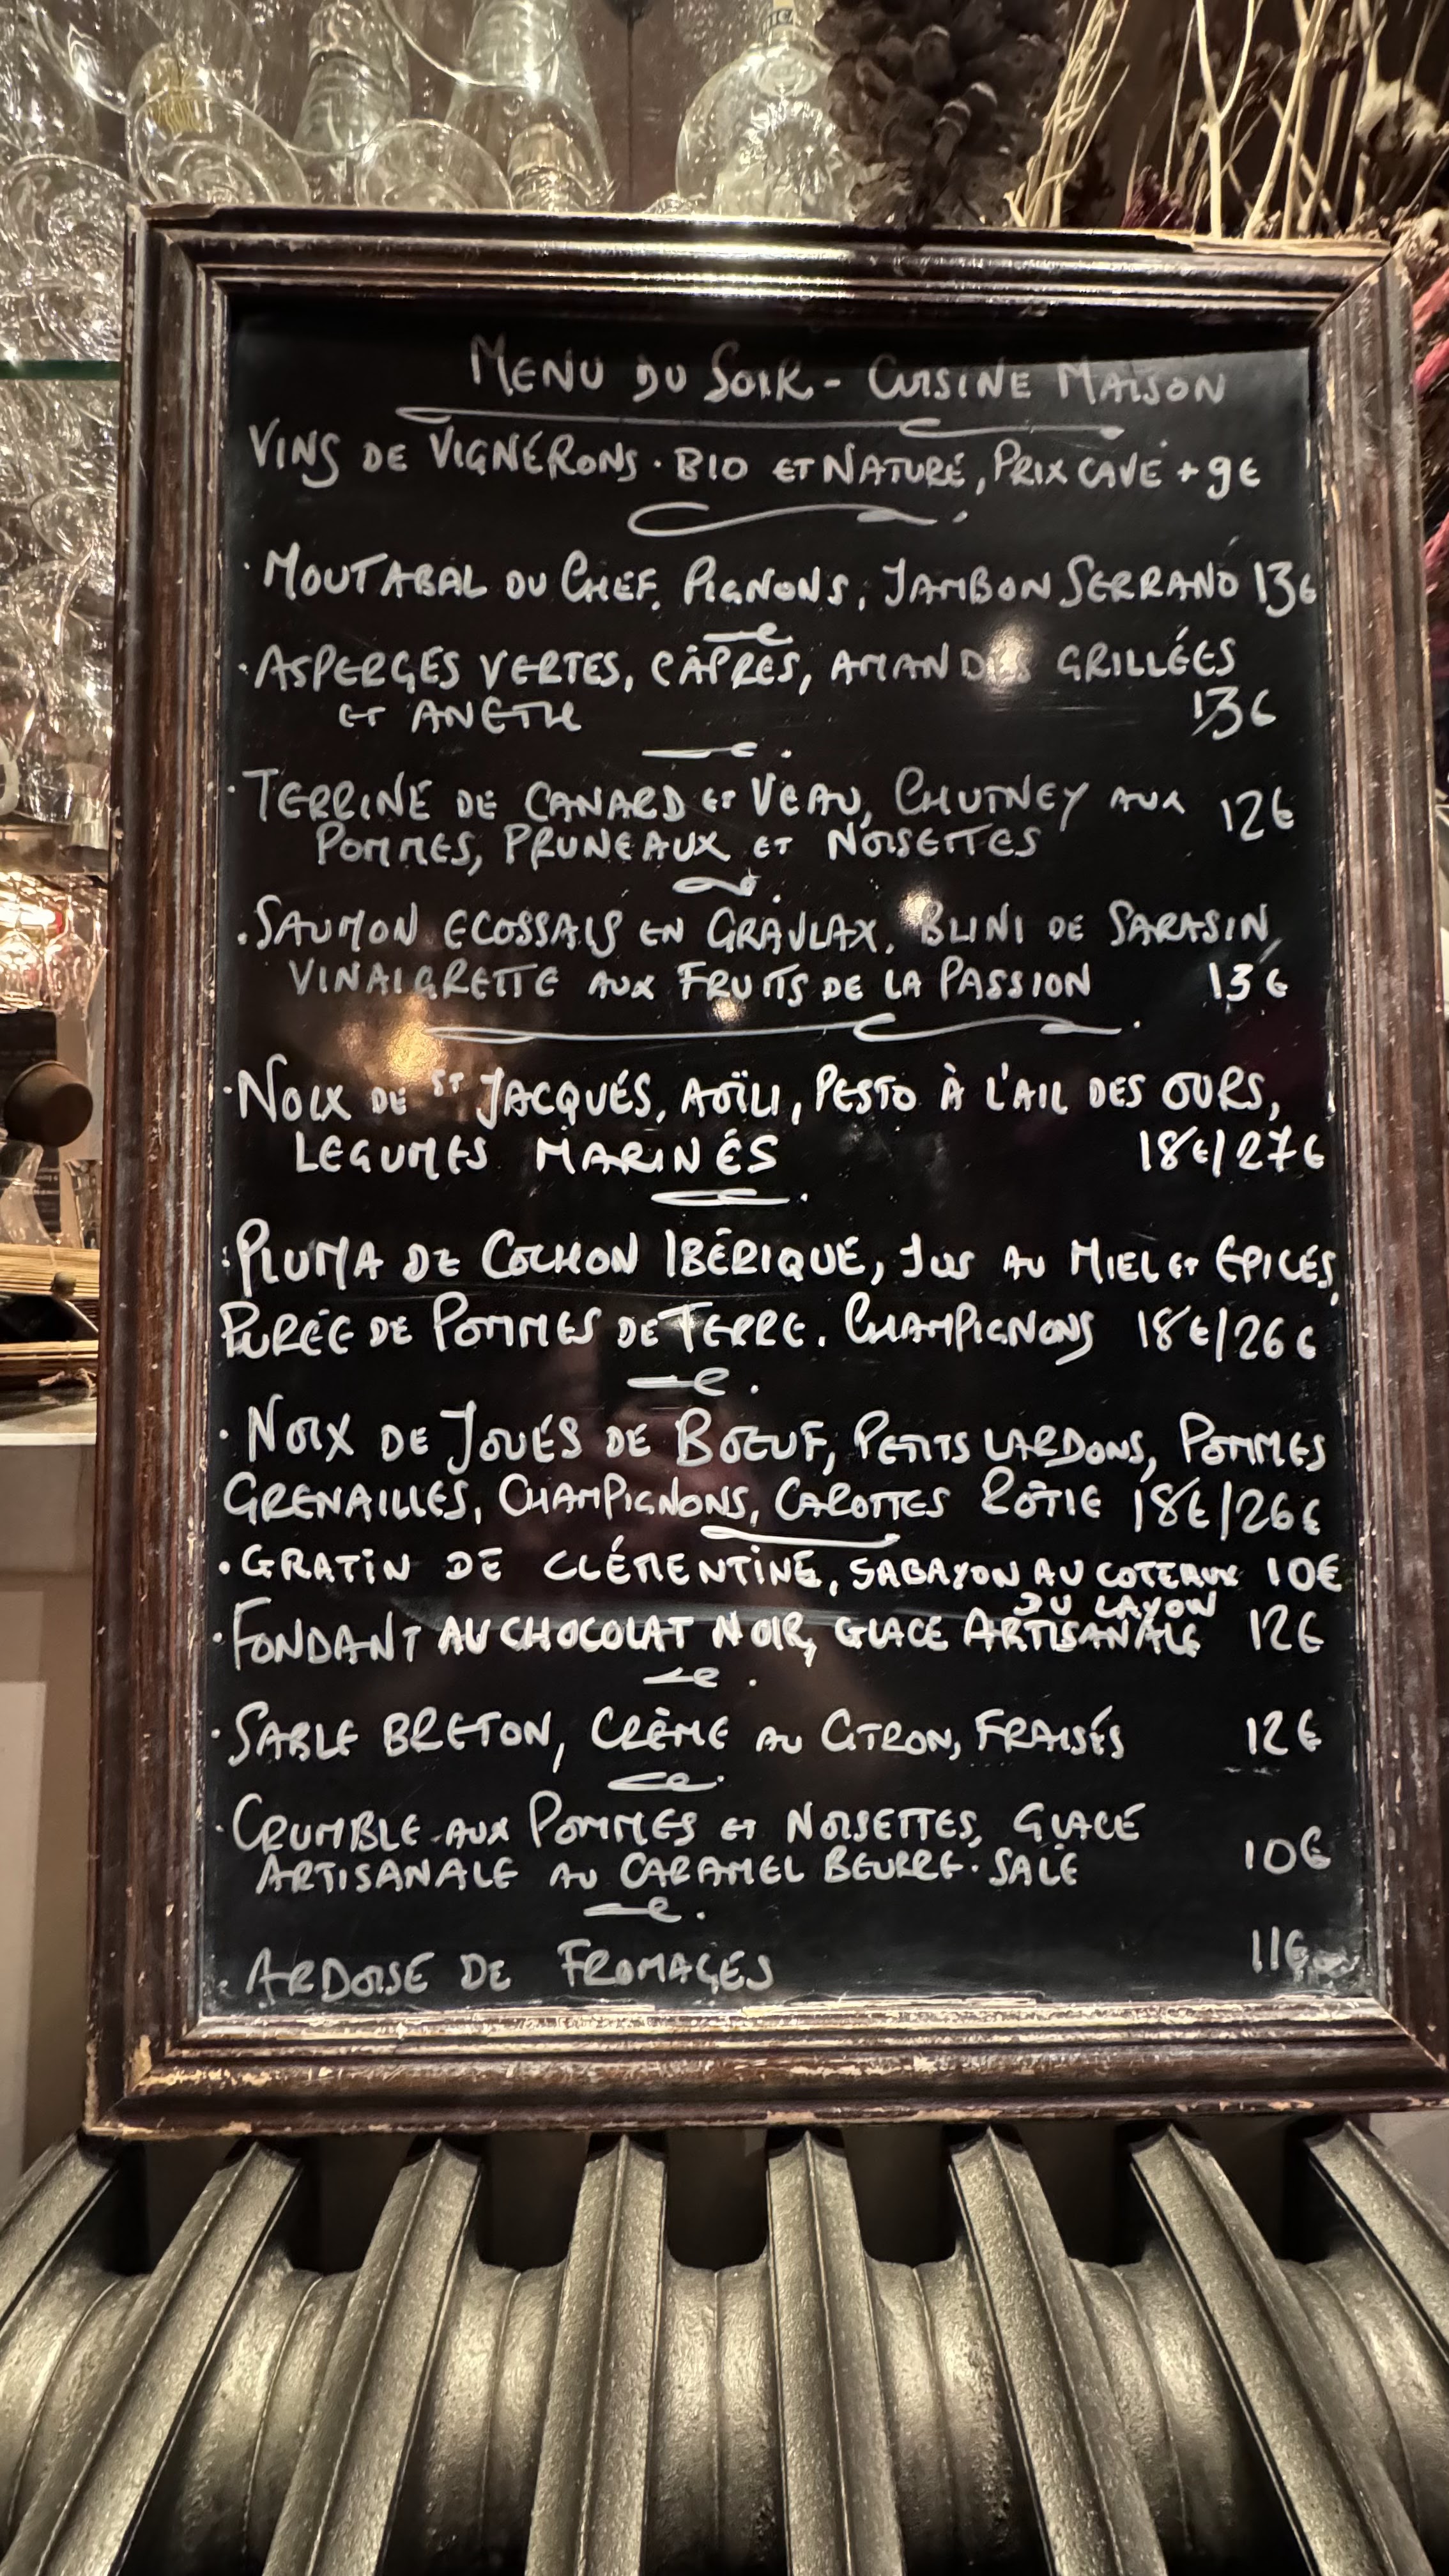 MENU DU SOIR - CUISINE MAISON
VINS DE VIGNÉRONS · BIO ET NATURÉ, PRIX CAVE + 9€
· MOUTABAL DU CHEF, PIGNONS, JAMBON SERRANO 13€
· ASPERGES VERTES, CÂPRES, AMANDES GRILLÉES
ET ANETH 13€
· TERRINE DE CANARD ET VEAU, CHUTNEY AUX 12€
POMMES, PRUNEAUX ET NOISETTES
· SAUMON ECOSSAIS EN GRAVLAX, BLINI DE SARASIN,
VINAIGRETTE AUX FRUITS DE LA PASSION 13€
· NOIX DE ST JACQUÉS, AOÏLI, PESTO À L'AIL DES OURS,
LEGUMES MARINÉS 18€/27€
· PLUMA DE COCHON IBÉRIQUE, JUS AU MIEL ET EPICES,
PURÉE DE POMMES DE TERRE, CHAMPIGNONS 18€/26€
· NOIX DE JOUES DE BOEUF, PETITS LARDONS, POMMES
GRENAILLES, CHAMPIGNONS, CAROTTES RÔTIE 18€/26€
· GRATIN DE CLÉMENTINE, SABAYON AU COTEAUX 10€
DU LAYON
· FONDANT AU CHOCOLAT NOIR, GLACE ARTISANALE 12€
· SABLE BRETON, CRÈME AU CITRON, FRAISÉS 12€
· CRUMBLE AUX POMMES ET NOISETTES, GLACE
ARTISANALE AU CARAMEL BEURRE · SALÉ 10€
· ARDOISE DE FROMAGES 11€